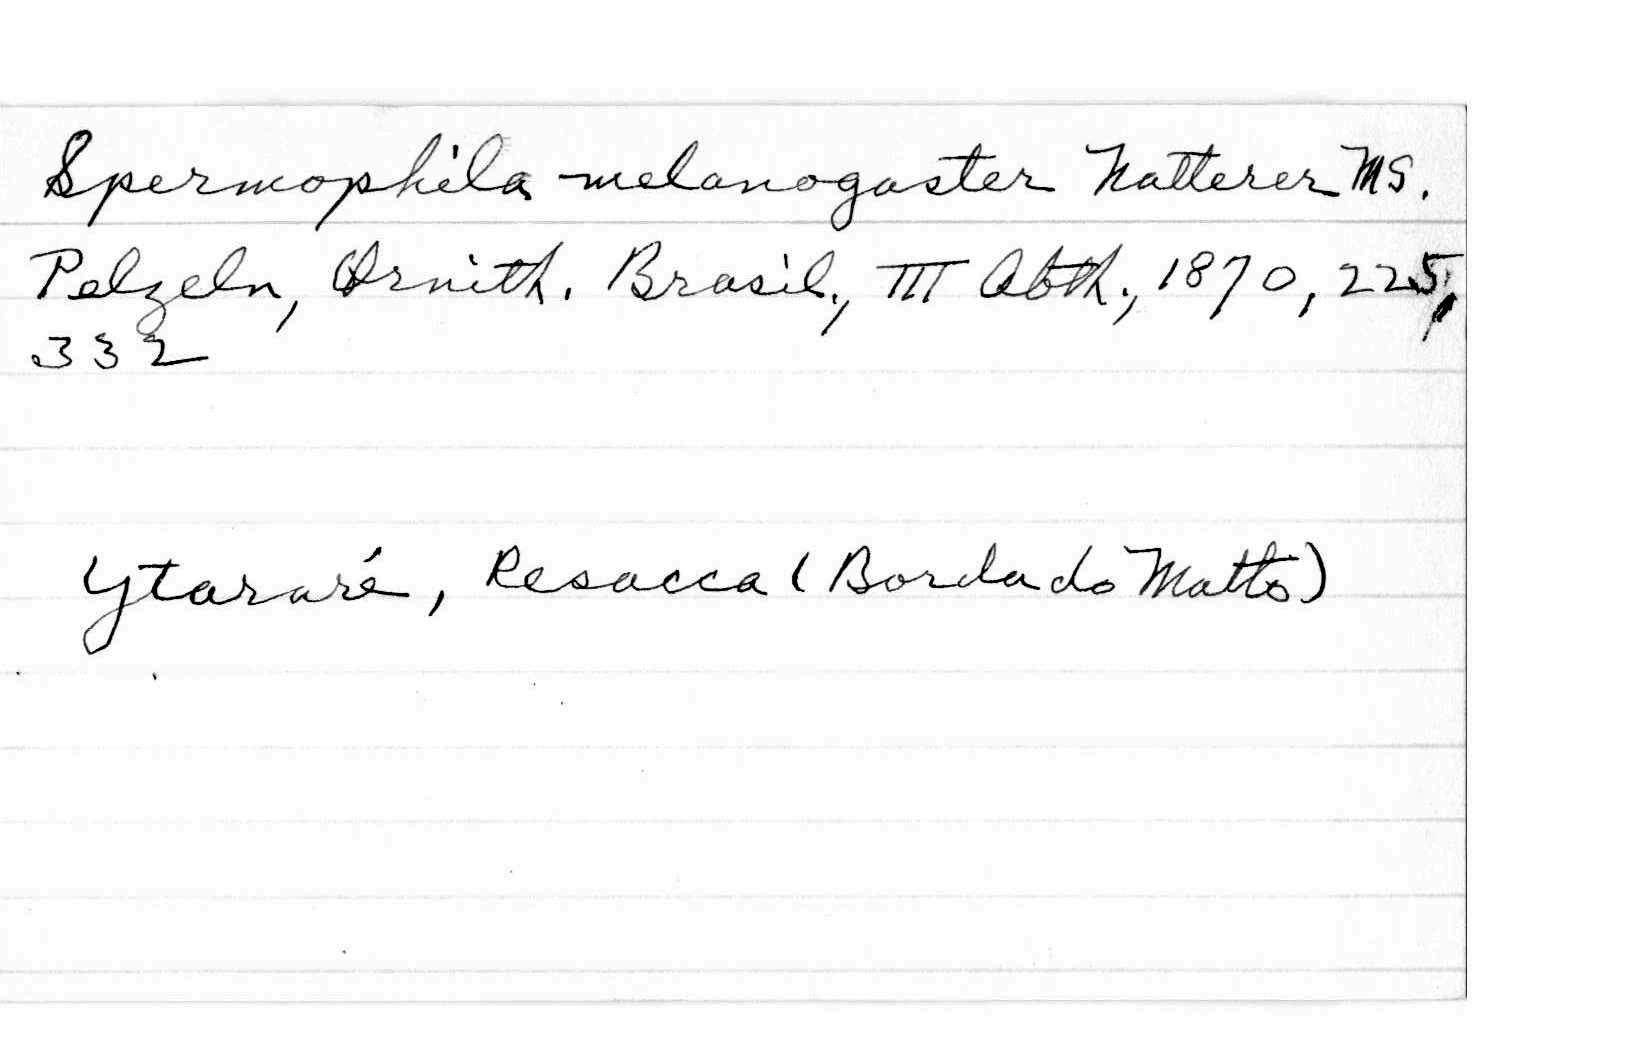 Spermophila melanogaster Natterer MS.
Pelzeln, Ornith. Brasil., III Abth., 1870, 225,
332
Ytararé, Resacca (Borda do Matto)